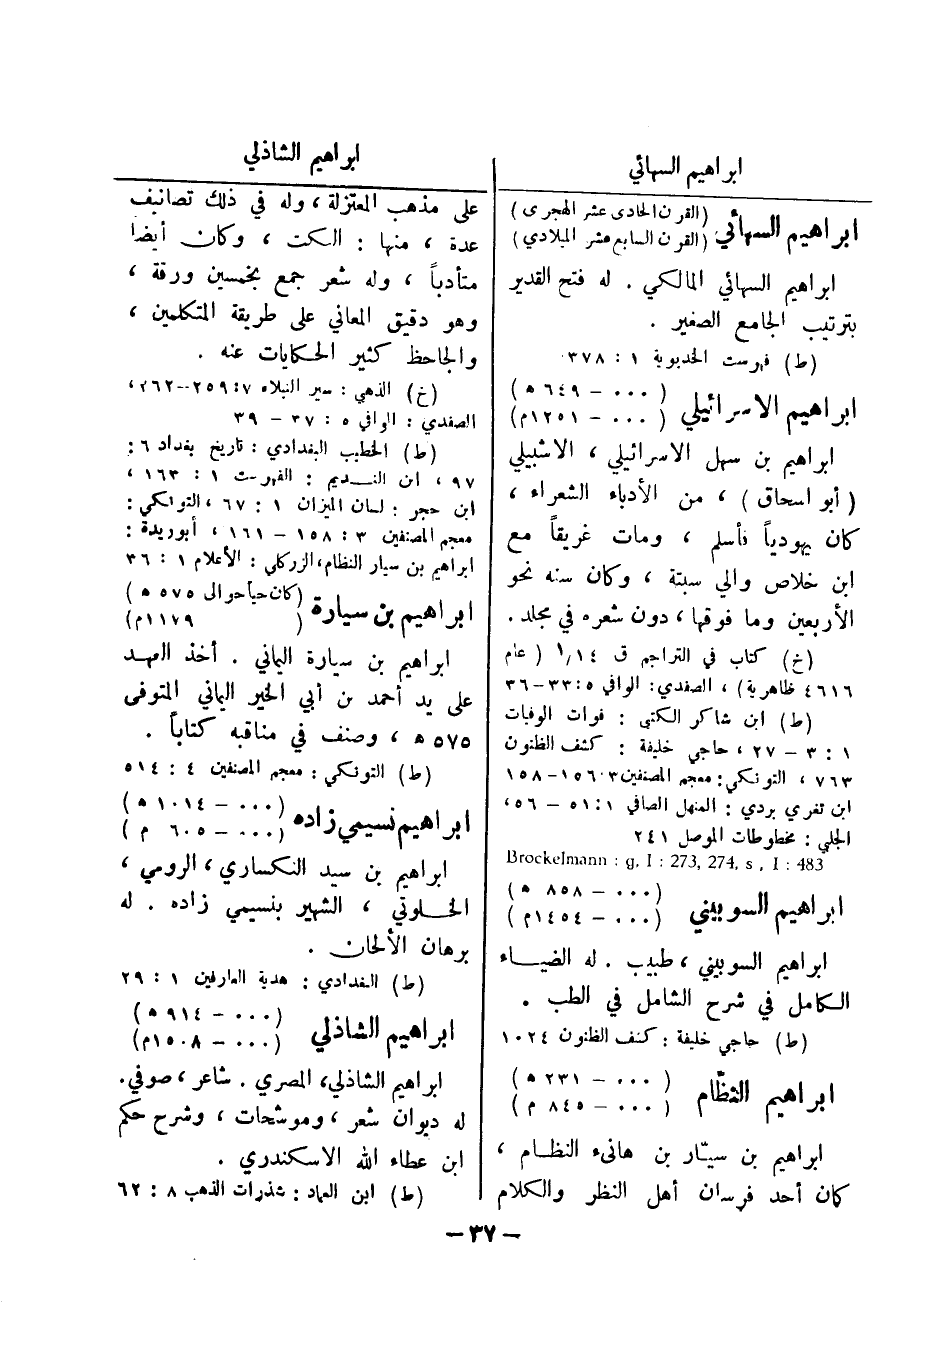 ابراهيم السهائي
ابراهيم السهائي (القرن الحادي عشر الهجري)
(القرن السابع عشر الميلادي)
ابراهيم السهائي المالكي . له فتح القدير
بترتيب الجامع الصغير .
(ط) فهرست الخديوية ١ : ٣٧٨
ابراهيم الاسرائيلي (٠٠٠ – ٦٤٩ هـ)
(٠٠٠ – ١٢٥١م)
ابراهيم بن سهل الاسرائيلي ، الاشبيلي
( أبو اسحاق ) ، من الأدباء الشعراء ،
كان يهودياً فأسلم ، ومات غريقاً مع
ابن خلاص والي سبتة ، وكان سنه نحو
الأربعين وما فوقها ، دون شعره في مجلد .
(خ) كتاب في التراجم ق ١/١٤ ( عام
٤٦١٦ ظاهرية) ، الصفدي : الوافي ٥ : ٣٣–٣٦
(ط) ابن شاكر الكتبي : فوات الوفيات
١ : ٣ – ٢٧ ، حاجي خليفة : كشف الظنون
٧٦٣ ، التونكي : معجم المصنفين ٣ : ١٥٦–١٥٨
ابن تغري بردي : المنهل الصافي ١ : ٥١ – ٥٦ ،
الجلبي : مخطوطات الموصل ٢٤١
Brockelmann : g, I : 273, 274, s , I : 483
ابراهيم السوبيني (٠٠٠ – ٨٥٨ هـ)
(٠٠٠ – ١٤٥٤م)
ابراهيم السوبيني ، طبيب . له الضياء
الكامل في شرح الشامل في الطب .
(ط) حاجي خليفة : كشف الظنون ١٠٢٤
ابراهيم النظّام (٠٠٠ – ٢٣١ هـ)
(٠٠٠ – ٨٤٥ م)
ابراهيم بن سيّار بن هانىء النظام ،
كان أحد فرسان أهل النظر والكلام
ابراهيم الشاذلي
على مذهب المعتزلة ، وله في ذلك تصانيف
عدة ، منها : النكت ، وكان أيضا
متأدباً ، وله شعر جمع بخمسين ورقة ،
وهو دقيق المعاني على طريقة المتكلمين ،
والجاحظ كثير الحكايات عنه .
(خ) الذهبي : سير النبلاء ٧ : ٢٥٩–٢٦٢ ،
الصفدي : الوافي ٥ : ٣٧ – ٣٩
(ط) الخطيب البغدادي : تاريخ بغداد ٦ :
٩٧ ، ابن النديم : الفهرست ١ : ١٦٣ ،
ابن حجر : لسان الميزان ١ : ٦٧ ، التونكي :
معجم المصنفين ٣ : ١٥٨ – ١٦١ ، أبوريدة :
ابراهيم بن سيار النظام ، الزركلي : الأعلام ١ : ٣٦
ابراهيم بن سيارة (كان حيا حوالى ٥٧٥ هـ)
( ١١٧٩م)
ابراهيم بن سيارة اليماني . أخذ العهد
على يد أحمد بن أبي الخير اليماني المتوفى
٥٧٥ هـ ، وصنف في مناقبه كتاباً .
(ط) التونكي : معجم المصنفين ٤ : ٥١٤
ابراهيم نسيمي زاده (٠٠٠ – ١٠١٤ هـ)
(٠٠٠ – ٦٠٥ م)
ابراهيم بن سيد النكساري ، الرومي ،
الخلوتي ، الشهير بنسيمي زاده . له
برهان الألحان .
(ط) البغدادي : هدية العارفين ١ : ٢٩
ابراهيم الشاذلي (٠٠٠ – ٩١٤ هـ)
(٠٠٠ – ١٥٠٨م)
ابراهيم الشاذلي ، المصري . شاعر ، صوفي .
له ديوان شعر ، وموشحات ، وشرح حكم
ابن عطاء الله الاسكندري .
(ط) ابن العماد : شذرات الذهب ٨ : ٦٢
– ٣٧ –